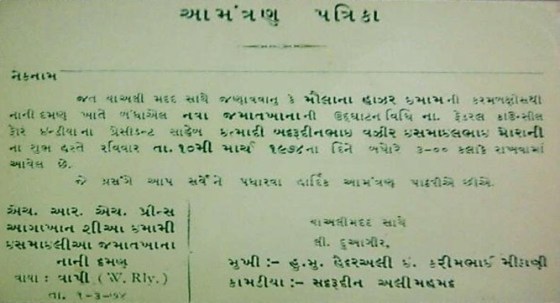 આમંત્રણ પત્રિકા
નેકનામ
જત યાઅલી મદદ સાથે જણાવવાનું કે મૌલાના હાઝર ઈમામની કરમબક્ષીસથી
નાની દમણ ખાતે બંધાએલ નવા જમાતખાનાની ઉદઘાટન વિધિ ના. ફેડરલ કાઉન્સીલ
ફોર ઈન્ડીયાના પ્રેસીડન્ટ સાહેબ ઈત્માદી બદરૂદીનભાઈ વઝીર ઈસમાઈલભાઈ
ના શુભ હસ્તે રવિવાર તા. ૧૦મી માર્ચ ૧૯૭૪ના દિને બપોરે ૩-૦૦ કલાકે રાખવામાં
આવેલ છે.
જે પ્રસંગે આપ સર્વેને પધારવા હાર્દિક આમંત્રણ પાઠવીએ છીએ.
એચ. આર. એચ. પ્રીન્સ
આગાખાન શીઆ ઈમામી
ઈસમાઈલીઆ જમાતખાના
નાની દમણ
વાયા : વાપી (W. Rly.)
તા. ૧-૩-૭૪
યાઅલીમદદ સાથે
લી. દુઆગીર,
મુખી :- હૈદરઅલી ઈ. કરીમભાઈ મીઠાણી
કામડીયા :- સદરૂદીન અલીમહમદ